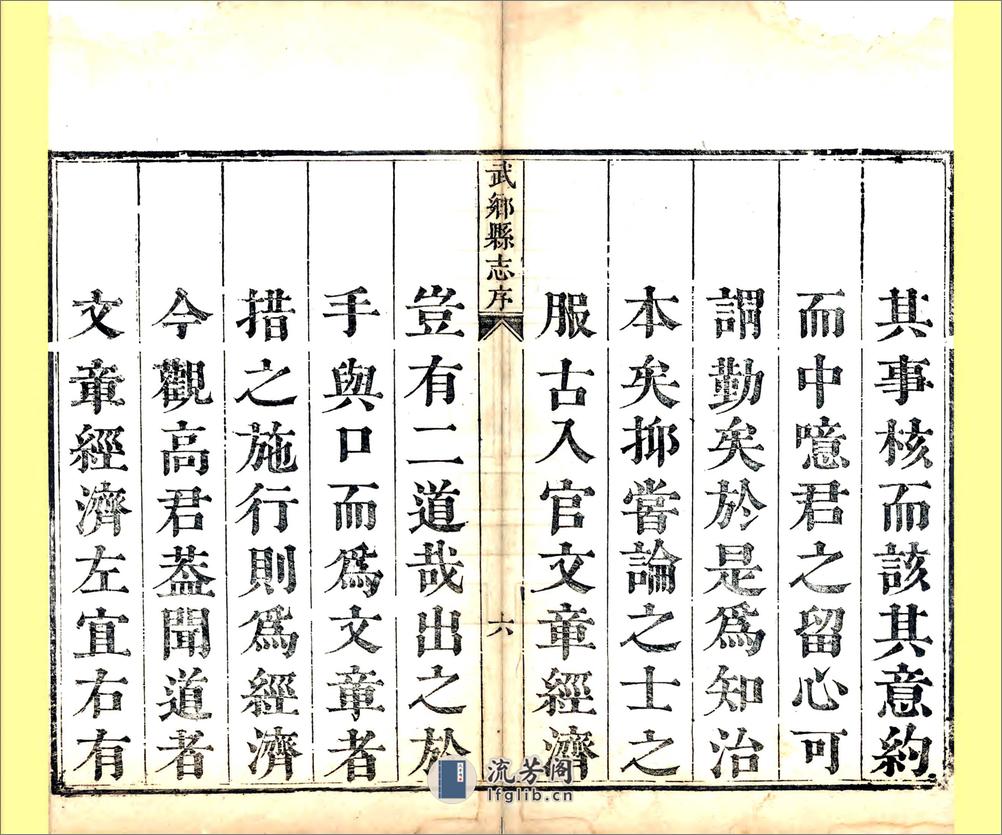 其事核而該其意約
而中噫君之留心可
謂勤矣於是為知治
本矣抑嘗論之士之
服古入官文章經濟
武鄉縣志序
六
豈有二道哉出之於
手與口而為文章者
措之施行則為經濟
今觀高君蓋聞道者
文章經濟左宜右有
流芳阁
lfglib.cn